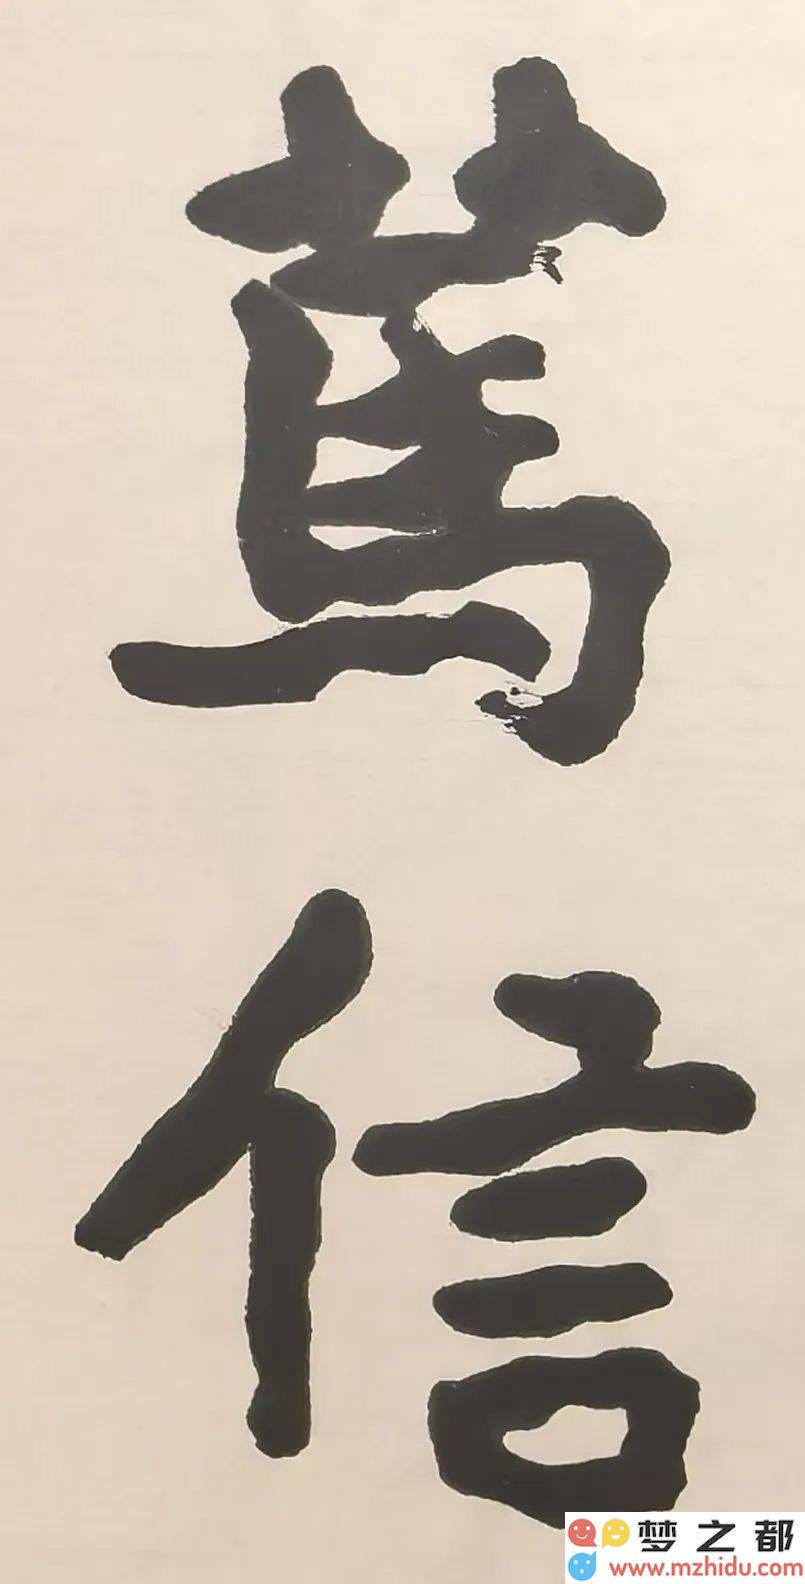 篤
信
梦之都
www.mzhidu.com